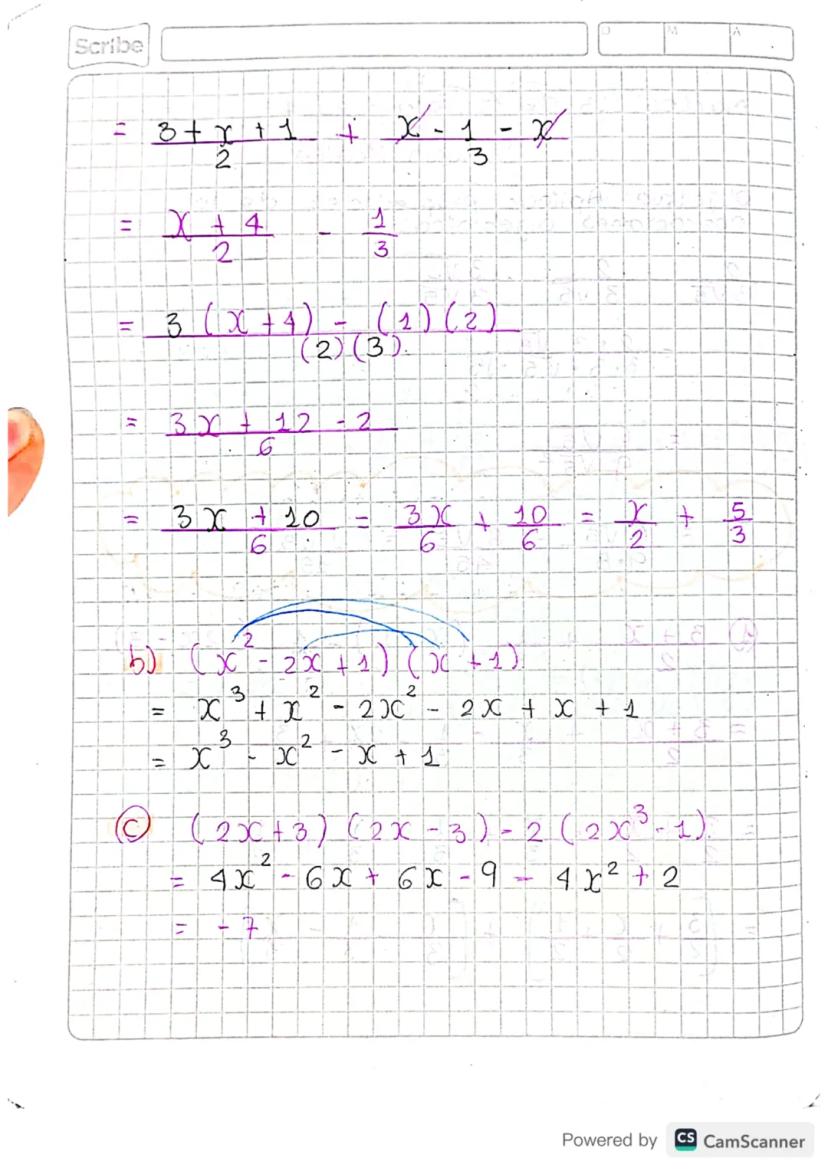 Scribe
D M A
= 3 + x + 1 / 2 + x - 1 - x / 3
= x + 4 / 2 - 1 / 3
= 3 (x + 4) - (1)(2) / (2)(3).
= 3x + 12 - 2 / 6
= 3x + 10 / 6 = 3x / 6 + 10 / 6 = x / 2 + 5 / 3
b) (x² - 2x + 1) (x + 1)
= x³ + x² - 2x² - 2x + x + 1
= x³ - x² - x + 1
c) (2x + 3) (2x - 3) - 2 (2x³ - 1)
= 4x² - 6x + 6x - 9 - 4x² + 2
= - 7
Powered by CS CamScanner